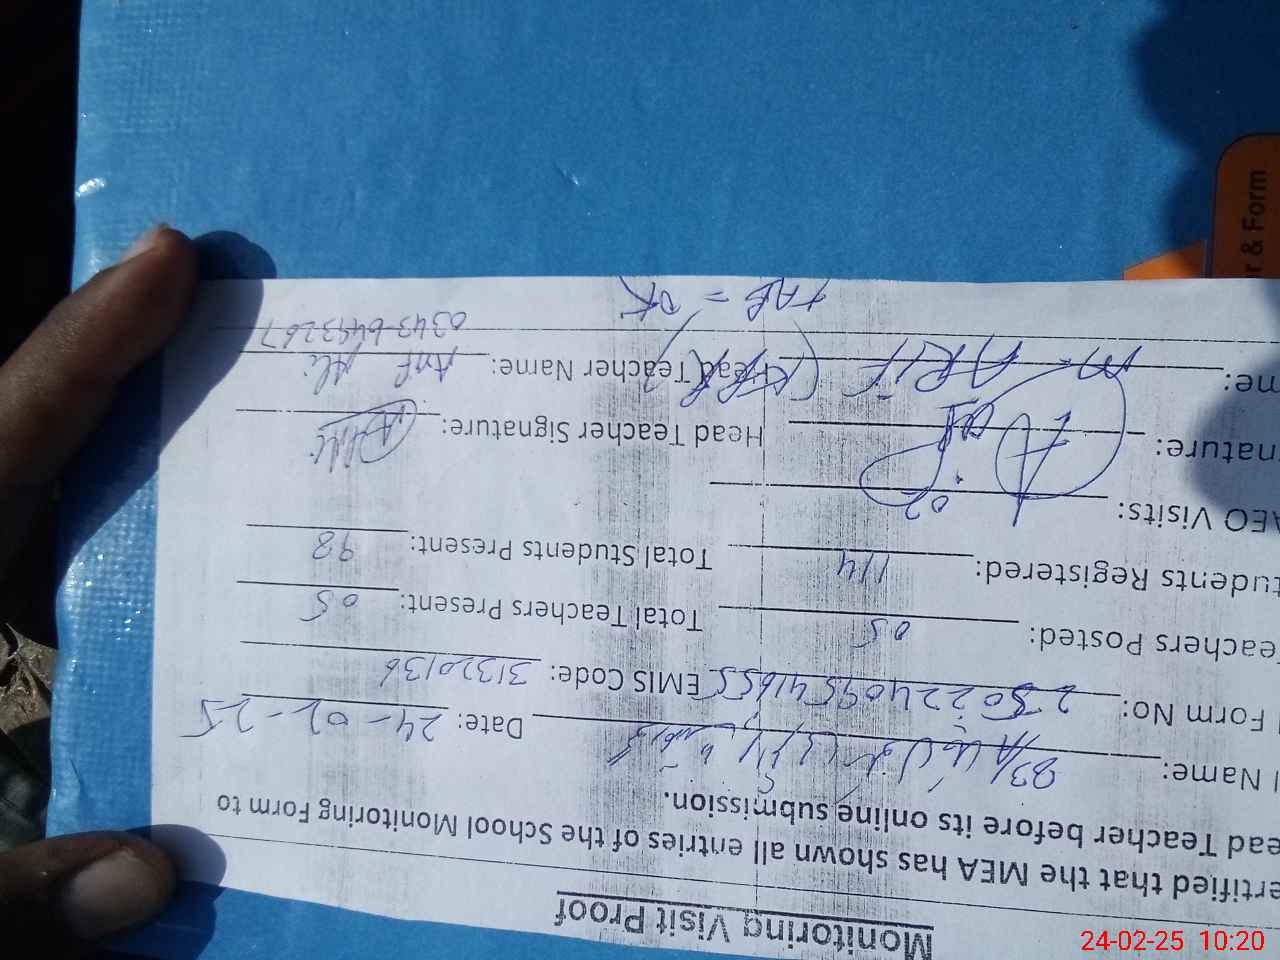 Monitoring Visit Proof
ertified that the MEA has shown all entries of the School Monitoring Form to
ead Teacher before its online submission.
l Name: Date: 24-02-25
Form No: EMIS Code: 31320136
eachers Posted: 05 Total Teachers Present: 05
tudents Registered: 114 Total Students Present: 98
AEO Visits: 02
nature: Head Teacher Signature:
me: M. ARIF Head Teacher Name: Arif Ali
0343-6493267
TAB = OK
r & Form
24-02-25 10:20